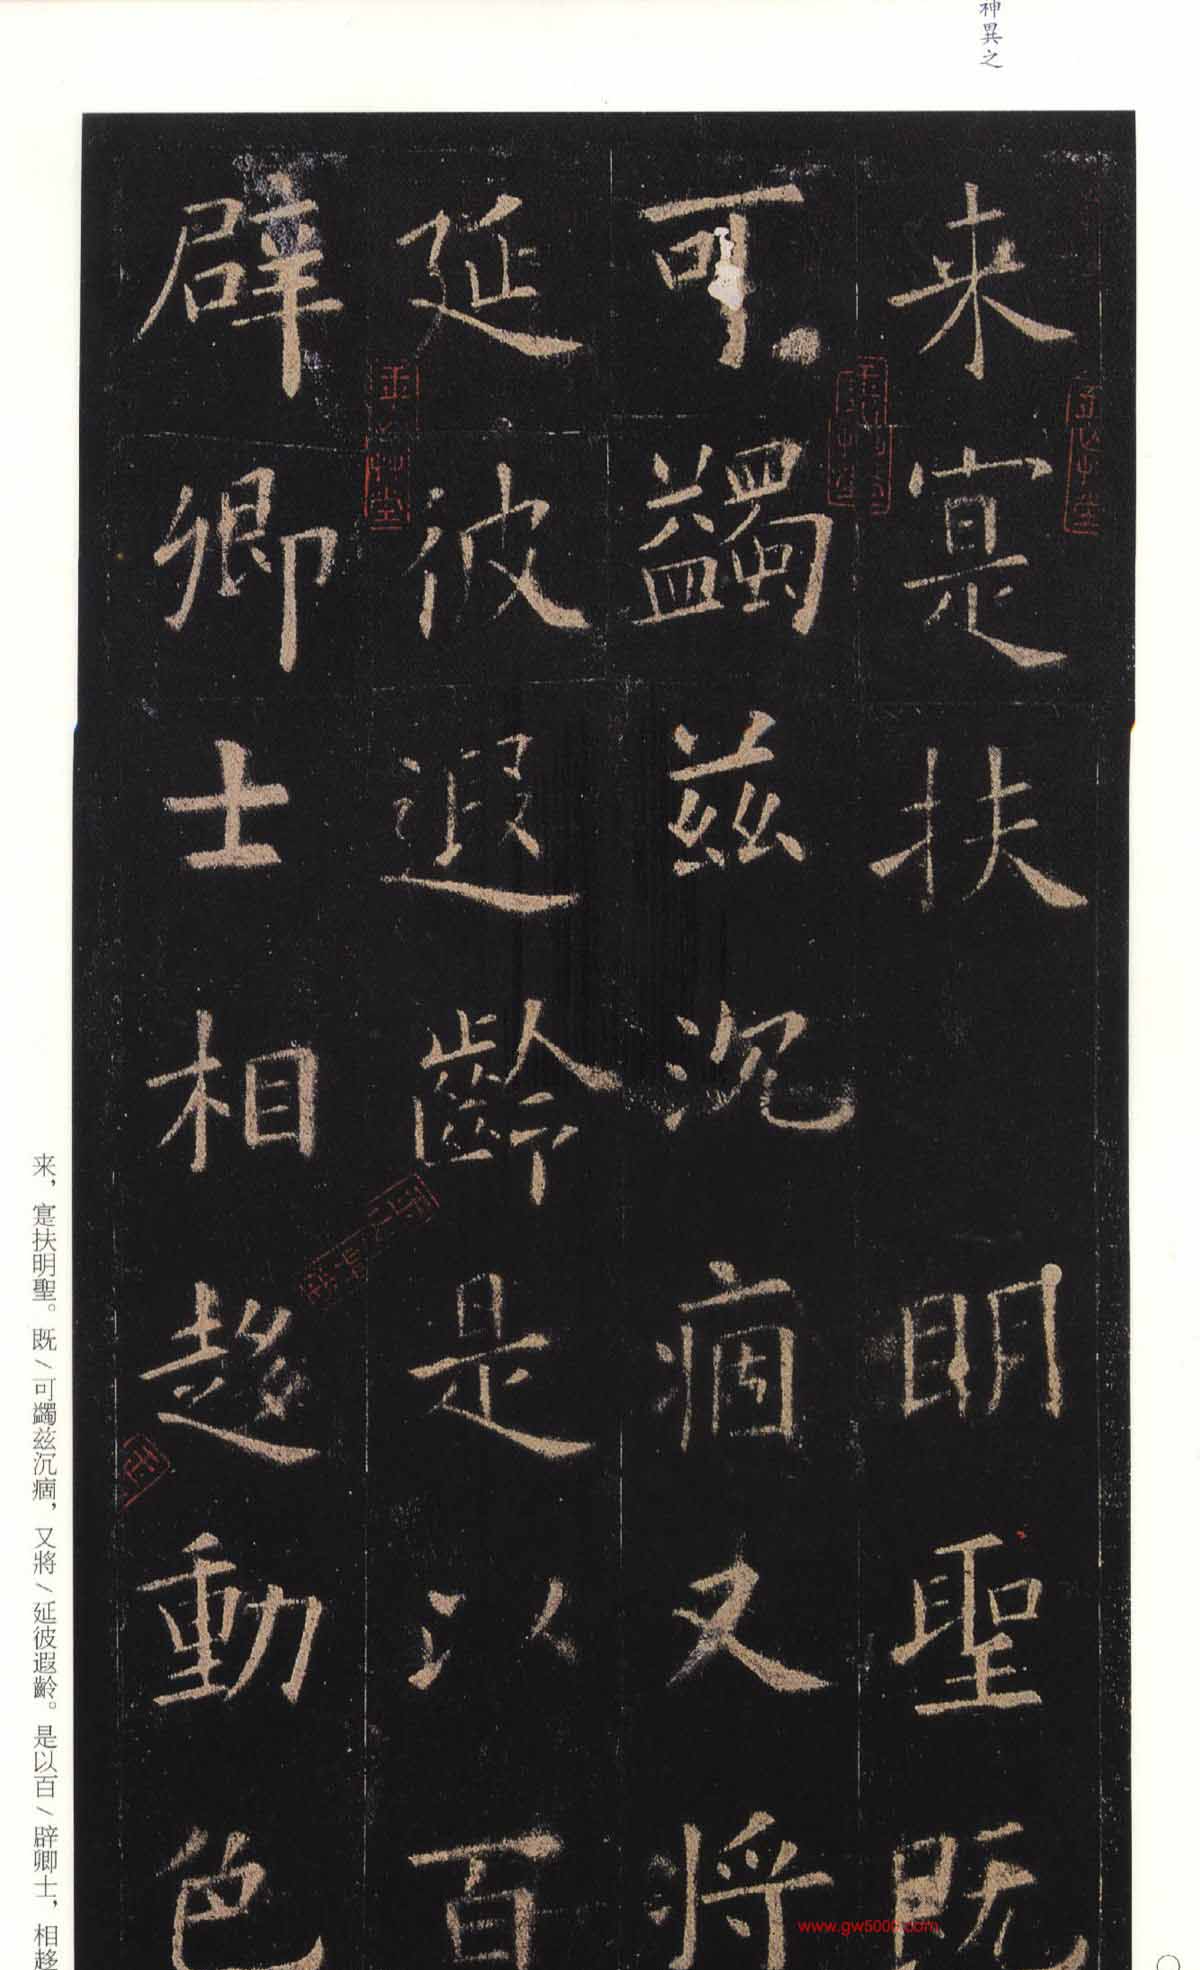 神異之
来寔扶明聖既
可蠲兹沉痼又将
延彼遐齡是以百
辟卿士相趍動色
来，寔扶明聖。既/可蠲兹沉痼，又將/延彼遐齡。是以百/辟卿士，相趍
www.gw5000.com